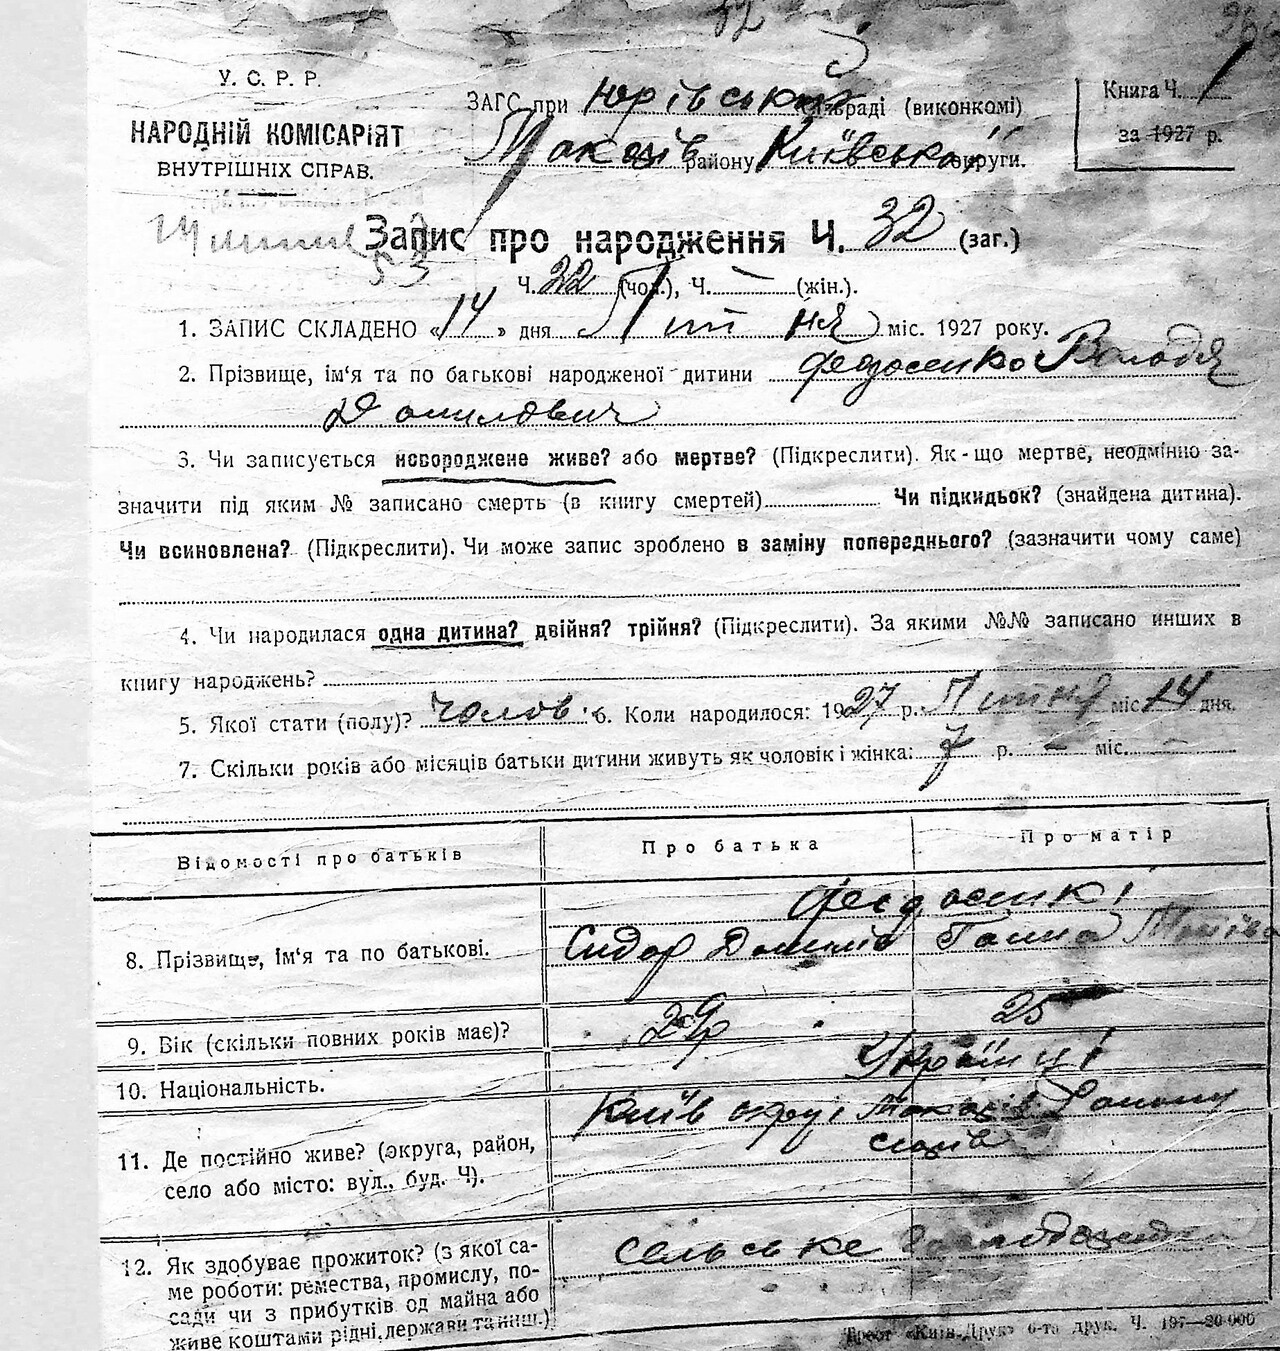 32
У. С. Р. Р.
НАРОДНІЙ КОМІСАРІЯТ
ВНУТРІШНІХ СПРАВ.
ЗАГС при Юрівській раді (виконкомі)
Макарів району Київської округи.
Книга Ч. 1
за 1927 р.
53
Запис про народження Ч. 32 (заг.)
Ч. 22 (чол.), Ч. — (жін.).
1. ЗАПИС СКЛАДЕНО «14» дня Липня міс. 1927 року.
2. Прізвище, ім‘я та по батькові народженої дитини Федосенко Володя
Данилович
3. Чи записується новороджене живе? або мертве? (Підкреслити). Як-що мертве, неодмінно за-
значити під яким № записано смерть (в книгу смертей) Чи підкидьок? (знайдена дитина).
Чи всиновлена? (Підкреслити). Чи може запис зроблено в заміну попереднього? (зазначити чому саме)
4. Чи народилася одна дитина? двійня? трійня? (Підкреслити). За якими №№ записано инших в
книгу народжень?
5. Якої стати (полу)? чолов. 6. Коли народилося: 1927 р. Липня міс. 14 дня.
7. Скільки років або місяців батьки дитини живуть як чоловік і жінка: 7 р. — міс. —
Відомості про батьків
Про батька
Про матір
Федосенкі
8. Прізвище, ім‘я та по батькові.
Сидор Данилів Ганна
9. Вік (скільки повних років має)?
29
25
10. Національність.
Українці
11. Де постійно живе? (округа, район,
село або місто: вул., буд. Ч).
Київ окру Макарів Району
12. Як здобуває прожиток? (з якої са-
ме роботи: ремества, промислу, по-
сади чи з прибутків од майна або
живе коштами рідні, держави та инш.)
сельське
Трест «Київ-Друк» 6-та друк. Ч. 197—20·000